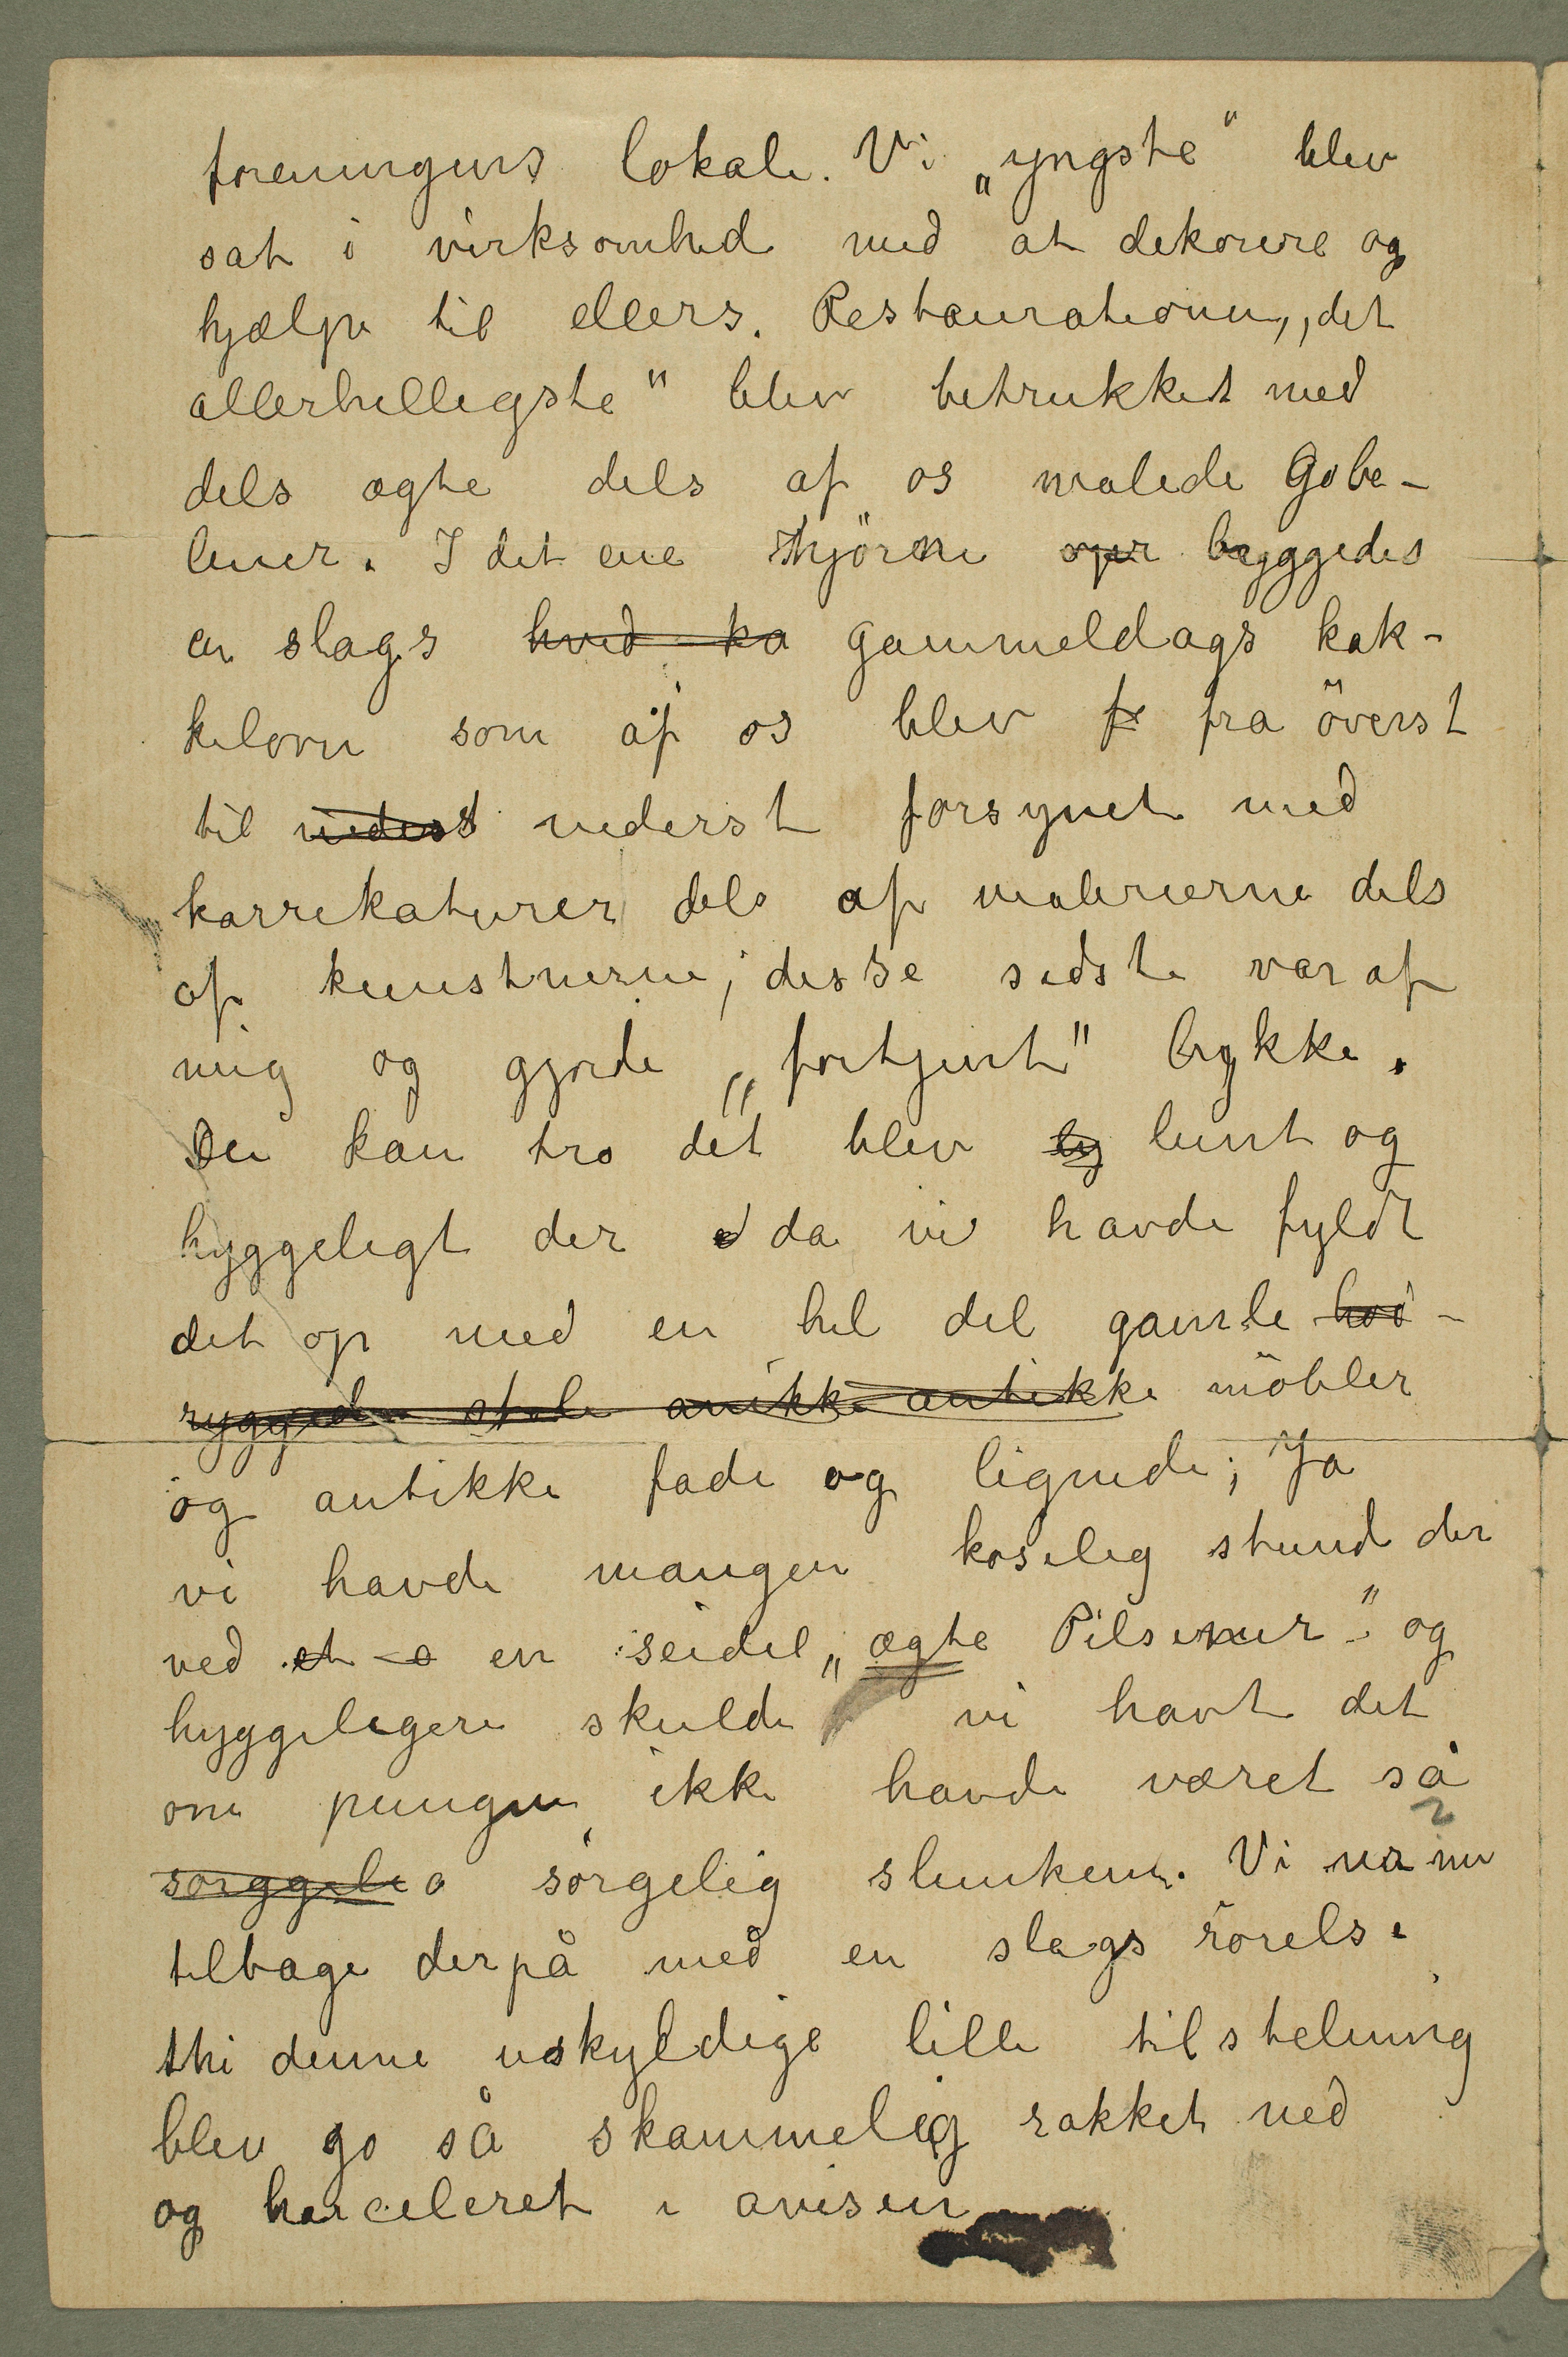 foreningens lokale. Vi „yngste“ blev
sat i virksomhed med at dekorere og
hjælpe til ellers. Restaurationen „det
allerhelligste“ blev betrukket med
dels ægte dels af os malede Gobe-
liner. I det ene hjörne opr byggedes
en slags hvid ka gammeldags kak-
kelovn som af os blev fr fra överst
til nederst nederst forsynet med
karrikaturer dels af malerierne dels
af kunstnerne; disse sidste var af
mig og gjorde „fortjent“ lykke.
Du kan tro det blev ly lunt og
hyggeligt der da vi havde fyldt
det op med en hel del gamle høi-
ryggede stole anikke antikke möbler
og antikke fade og lignede; Ja
vi havde mangen koselig stund der
ved et en seidel „ægte Pilsener“ og
hyggeligere skulde vi havt det
om pungen ikke havde været så
sörggeli sörgelig slunken. Vi ser nu
tilbage derpå med en slags rörelse
thi denne uskyldige lille tilstelning
blev jo så skammelig rakket ned
og harceleret i avisen